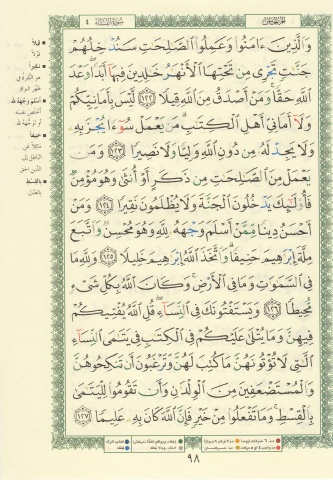 سورة النساء ٤
وَالَّذِينَ ءَامَنُوا وَعَمِلُوا الصَّـٰلِحَـٰتِ سَنُدْخِلُهُمْ
جَنَّـٰتٍ تَجْرِى مِن تَحْتِهَا الْأَنْهَـٰرُ خَـٰلِدِينَ فِيهَآ أَبَدًا وَعْدَ
اللَّهِ حَقًّا وَمَنْ أَصْدَقُ مِنَ اللَّهِ قِيلًا ١٢٢ لَّيْسَ بِأَمَانِيِّكُمْ
وَلَآ أَمَانِىِّ أَهْلِ الْكِتَـٰبِ مَن يَعْمَلْ سُوٓءًا يُجْزَ بِهِ
وَلَا يَجِدْ لَهُ مِن دُونِ اللَّهِ وَلِيًّا وَلَا نَصِيرًا ١٢٣ وَمَن
يَعْمَلْ مِنَ الصَّـٰلِحَـٰتِ مِن ذَكَرٍ أَوْ أُنثَىٰ وَهُوَ مُؤْمِنٌ
فَأُولَـٰٓئِكَ يَدْخُلُونَ الْجَنَّةَ وَلَا يُظْلَمُونَ نَقِيرًا ١٢٤ وَمَنْ
أَحْسَنُ دِينًا مِّمَّنْ أَسْلَمَ وَجْهَهُ لِلَّهِ وَهُوَ مُحْسِنٌ وَاتَّبَعَ
مِلَّةَ إِبْرَٰهِيمَ حَنِيفًا وَاتَّخَذَ اللَّهُ إِبْرَٰهِيمَ خَلِيلًا ١٢٥ وَلِلَّهِ مَا
فِى السَّمَـٰوَٰتِ وَمَا فِى الْأَرْضِ وَكَانَ اللَّهُ بِكُلِّ شَىْءٍ
مُّحِيطًا ١٢٦ وَيَسْتَفْتُونَكَ فِى النِّسَآءِ قُلِ اللَّهُ يُفْتِيكُمْ
فِيهِنَّ وَمَا يُتْلَىٰ عَلَيْكُمْ فِى الْكِتَـٰبِ فِى يَتَـٰمَى النِّسَآءِ
الَّـٰتِى لَا تُؤْتُونَهُنَّ مَا كُتِبَ لَهُنَّ وَتَرْغَبُونَ أَن تَنكِحُوهُنَّ
وَالْمُسْتَضْعَفِينَ مِنَ الْوِلْدَٰنِ وَأَن تَقُومُوا لِلْيَتَـٰمَىٰ
بِالْقِسْطِ وَمَا تَفْعَلُوا مِنْ خَيْرٍ فَإِنَّ اللَّهَ كَانَ بِهِ عَلِيمًا ١٢٧
٩٨
قيلا
قولاً
نقيرا
حنيفا
بالقسط
بالعدل